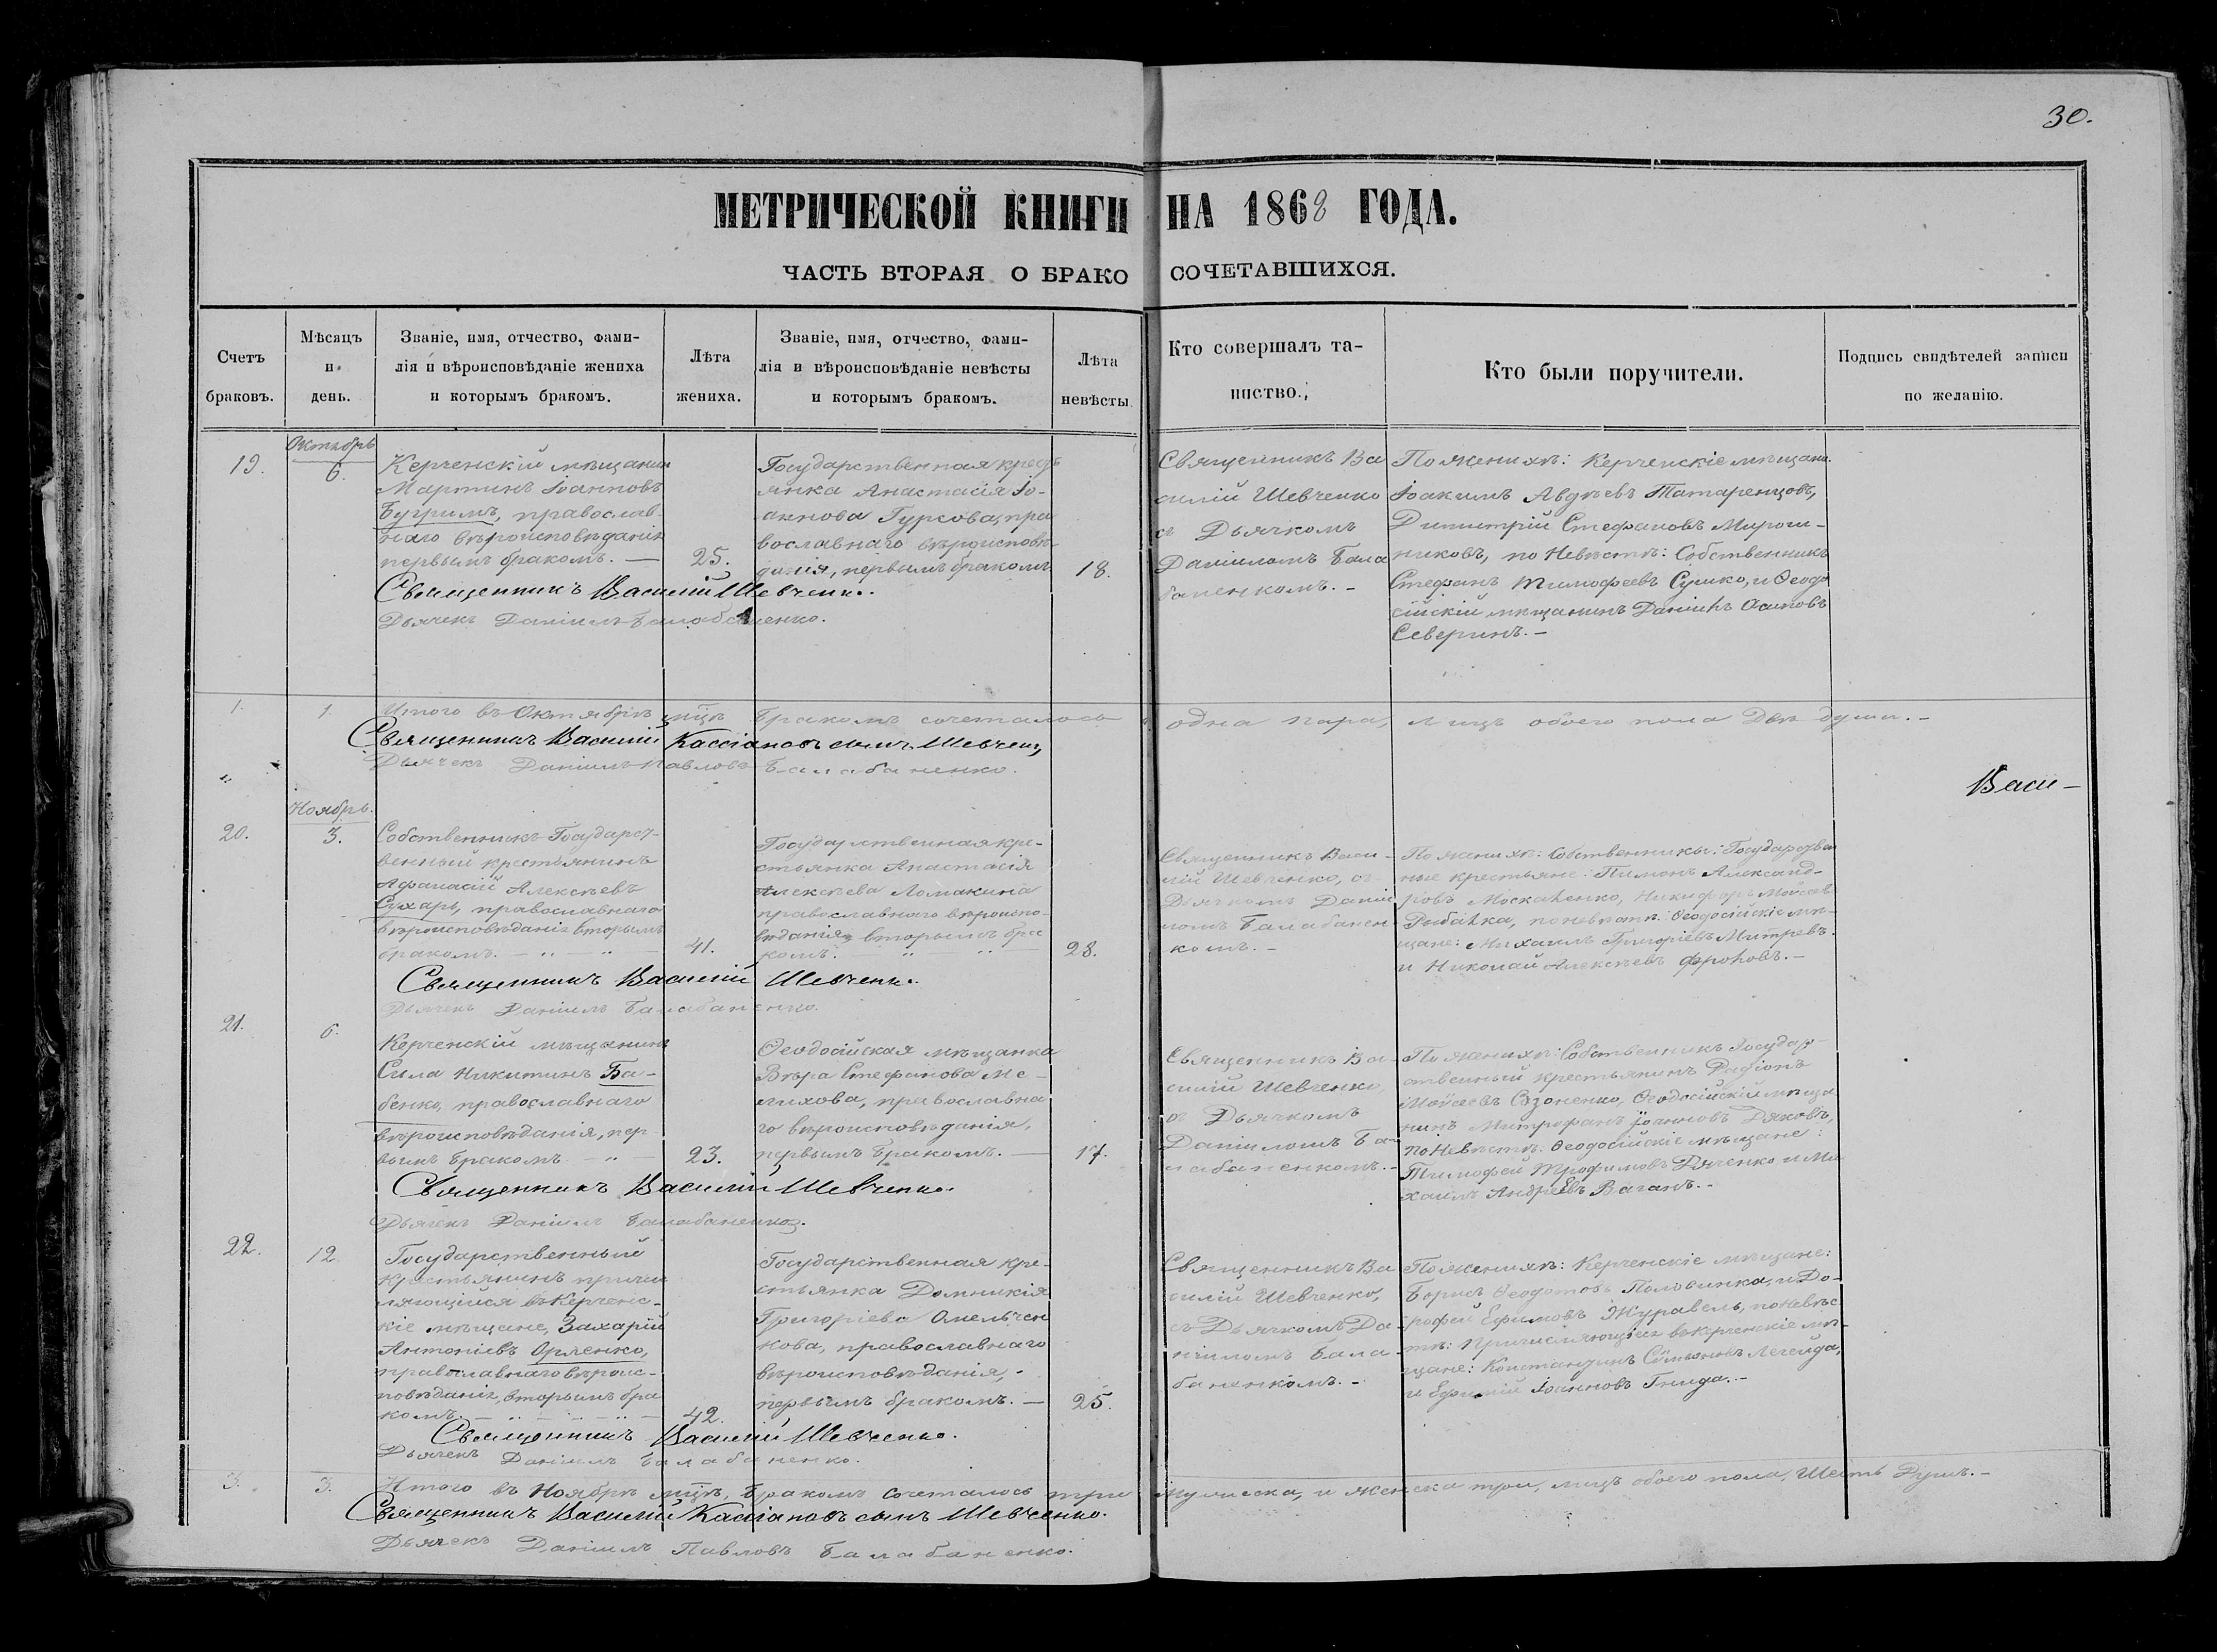 30.
МЕТРИЧЕСКОЙ КНИГИ НА 1868 ГОДА.
ЧАСТЬ ВТОРАЯ О БРАКОСОЧЕТАВШИХСЯ.
Счетъ
браковъ.
Мѣсяцъ
и
день.
Званіе, имя, отчество, фами-
лія и вѣроисповѣданіе жениха
и которымъ бракомъ.
Лѣта
жениха.
Званіе, имя, отчество, фами-
лія и вѣроисповѣданіе невѣсты
и которымъ бракомъ.
Лѣта
невѣсты.
Кто совершалъ та-
инство.
Кто были поручители.
Подпись свидѣтелей записи
по желанію.
19.
Октябрь
6.
Керченскій мѣщанинъ
Мартинъ Іоанновъ
Бугримъ, православ-
наго вѣроисповѣданія
первымъ бракомъ. —
25.
Государственная кресть
янка Анастасія Іо-
аннова Гурсова, пра
вославнаго вѣроисповѣ-
данія, первымъ бракомъ
18.
Священникъ Ва
силій Шевченко
съ Дьячкомъ
Даніиломъ Бала
баненкомъ. -
По женихѣ: Керченскіе мѣщане.
Іоакимъ Авдѣевъ Татаренцовъ,
Димитрій Стефановъ Мирош-
никовъ, по Невѣстѣ: Собственникъ
Стефанъ Тимофеевъ Сушко, и Ѳеодо
сійскій мѣщанинъ Даніилъ Осиповъ
Северинъ. -
Священникъ Василій Шевченко.
Дьячекъ Даніилъ Балабаненко.
1.
1.
Итого въ Октябрѣ мцѣ Бракомъ сочеталось одна пара, лицъ обоего пола Двѣ души. -
Священникъ Василій Кассіановъ сынъ Шевченко
Дьячекъ Даніилъ Павловъ Балабаненко.
Васи-
20.
Ноябрь.
3.
Собственникъ Государст-
венный крестьянинъ
Афанасій Алексѣевъ
Сухарь, православнаго
вѣроисповѣданія вторымъ
бракомъ. —
41.
Государственная кре-
стьянка Анастасія
Алексѣева Ломакина
православнаго вѣроиспо-
вѣданія, вторымъ бра
комъ.
28.
Священникъ Васи-
лій Шевченко, съ
Дьячкомъ Даніи
ломъ Балабанен
комъ. -
По женихѣ: Собственники: Государствен
ные крестьяне: Пименъ Александ-
ровъ Москаленко, Никифоръ Моисеев
Рыбалка, по невѣстѣ: Ѳеодосійскіе мѣ-
щане: Михаилъ Григоріевъ Митревъ.
и Николай Алексѣевъ Фроловъ. -
Священникъ Василій Шевченко.
Дьячекъ Даніилъ Балабаненко.
21.
6.
Керченскій мѣщанинъ
Сила Никитинъ Ба-
бенко, православнаго
вѣроисповѣданія, пер
вымъ бракомъ. —
23.
Ѳеодосійская мѣщанка
Вѣра Стефанова Ме-
лихова, православна
го вѣроисповѣданія,
первымъ бракомъ. —
17.
Священникъ Ва-
силій Шевченко,
съ Дьячкомъ
Даніиломъ Ба-
лабаненкомъ. -
По женихѣ: Собственникъ Государ-
ственный крестьянинъ Родіонъ
Моисеевъ Ѳеодосійскій мѣща
нинъ Митрофанъ Іоанновъ Дяковъ,
по Невѣстѣ: Ѳеодосійскіе мѣщане:
Тимофей Трофимовъ Дяченко и Ми
хаилъ АндреевъВаганъ. -
Священникъ Василій Шевченко.
Дьячекъ Даніилъ Балабаненко.
22.
12.
Государственный
крестьянинъ причи
сляющійся въ Керченс-
кіе мѣщане, Захарій
Антоніевъ Орленко,
православнаго вѣроис-
повѣданія, вторымъ бра
комъ. —
42.
Государственная кре-
стьянка Домникія
Григоріева Омельчен
кова, православнаго
вѣроисповѣданія,
первымъ бракомъ. —
25.
Священникъ Ва
силій Шевченко,
съ Дьячкомъ Да-
ніиломъ Бала-
баненкомъ. -
По женихѣ: Керченскіе мѣщане:
Борисъ Ѳеодотовъ Половинка, и До-
рофей Ефимовъ Журавель, по невѣс-
тѣ: Причисляющіеся въ Керченскіе мѣ-
щане: Константинъ Легейда,
и Ефимій Іоанновъ Гнида. -
Священникъ Василій Шевченко.
Дьячекъ Даніилъ Балабаненко.
3.
3.
Итого въ Ноябрѣ мцѣ, Бракомъ сочеталось три мужеска, и женска три, лицъ обоего пола, Шесть Душъ. -
Священникъ Василій Кассіановъ сынъ Шевченко.
Дьячекъ Даніилъ Павловъ Балабаненко.